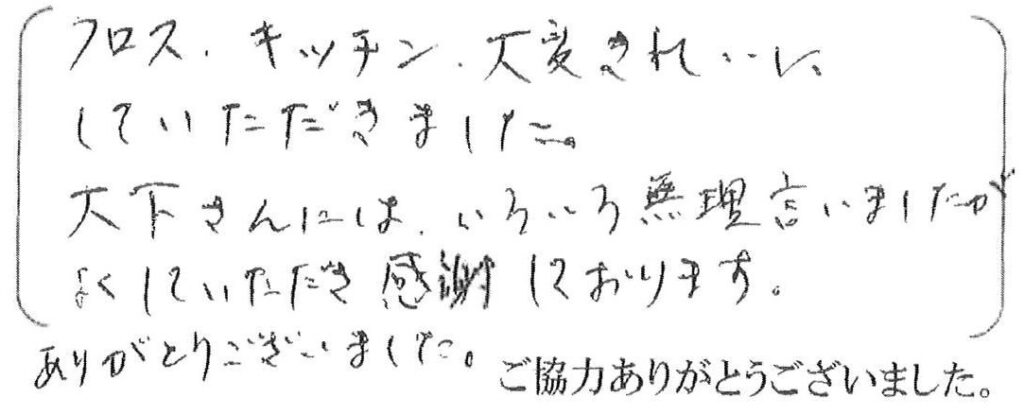 フロス、キッチン、大変きれいに
していただきました。
大下さんには、いろいろ無理言いましたが
よくしていただき感謝しております。
ありがとうございました。
ご協力ありがとうございました。